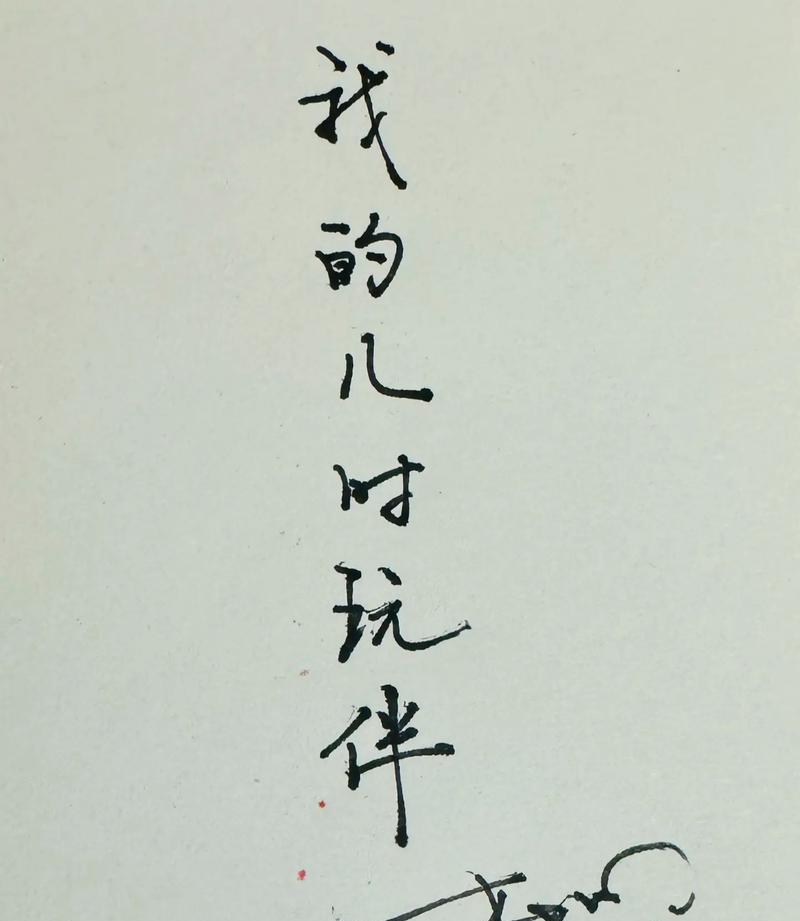 我的儿时玩伴